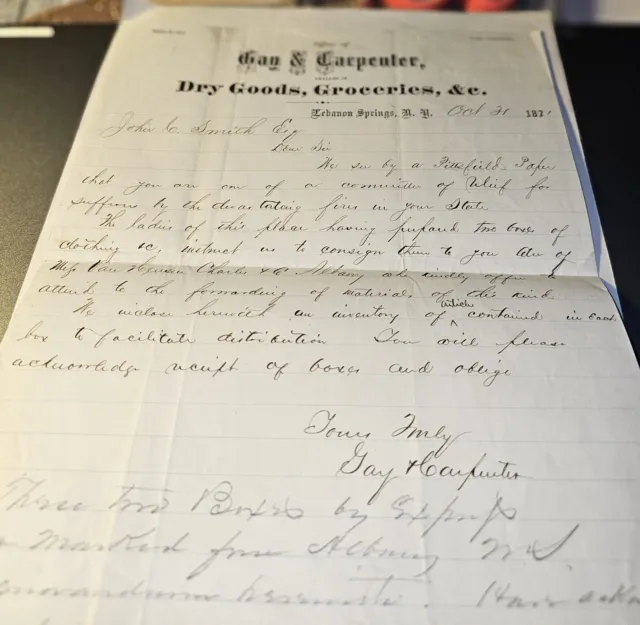 Office of
Gay & Carpenter,
DEALERS IN
Dry Goods, Groceries, &c.
Lebanon Springs, N. Y. Oct 21 1871
John C Smith Esq
Dear Sir
We see by a Pittsfield Paper
that you are one of a committee of Relief for
sufferers by the devastating fires in your State
The ladies of this place having prepared two boxes of
clothing &c, instruct us to consign them to you care of
Mess Van Charles & Co Albany who kindly offer to
attend to the forwarding of materials of this kind
We inclose herewith an inventory of articles contained in each
box to facilitate distribution You will please
acknowledge receipt of boxes and oblige
Yours Truly
Gay & Carpenter
These two Boxes by Express
Marked from Albany N.Y.
memorandum herewith. Have